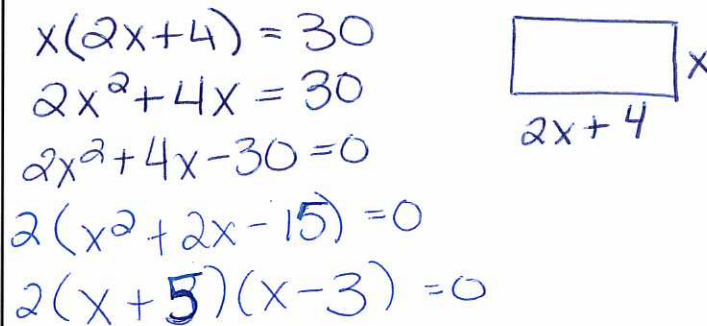 x(2x+4) = 30
2x²+4x = 30
2x²+4x-30=0
2(x²+2x-15)=0
2(x+5)(x-3)=0
x
2x+4